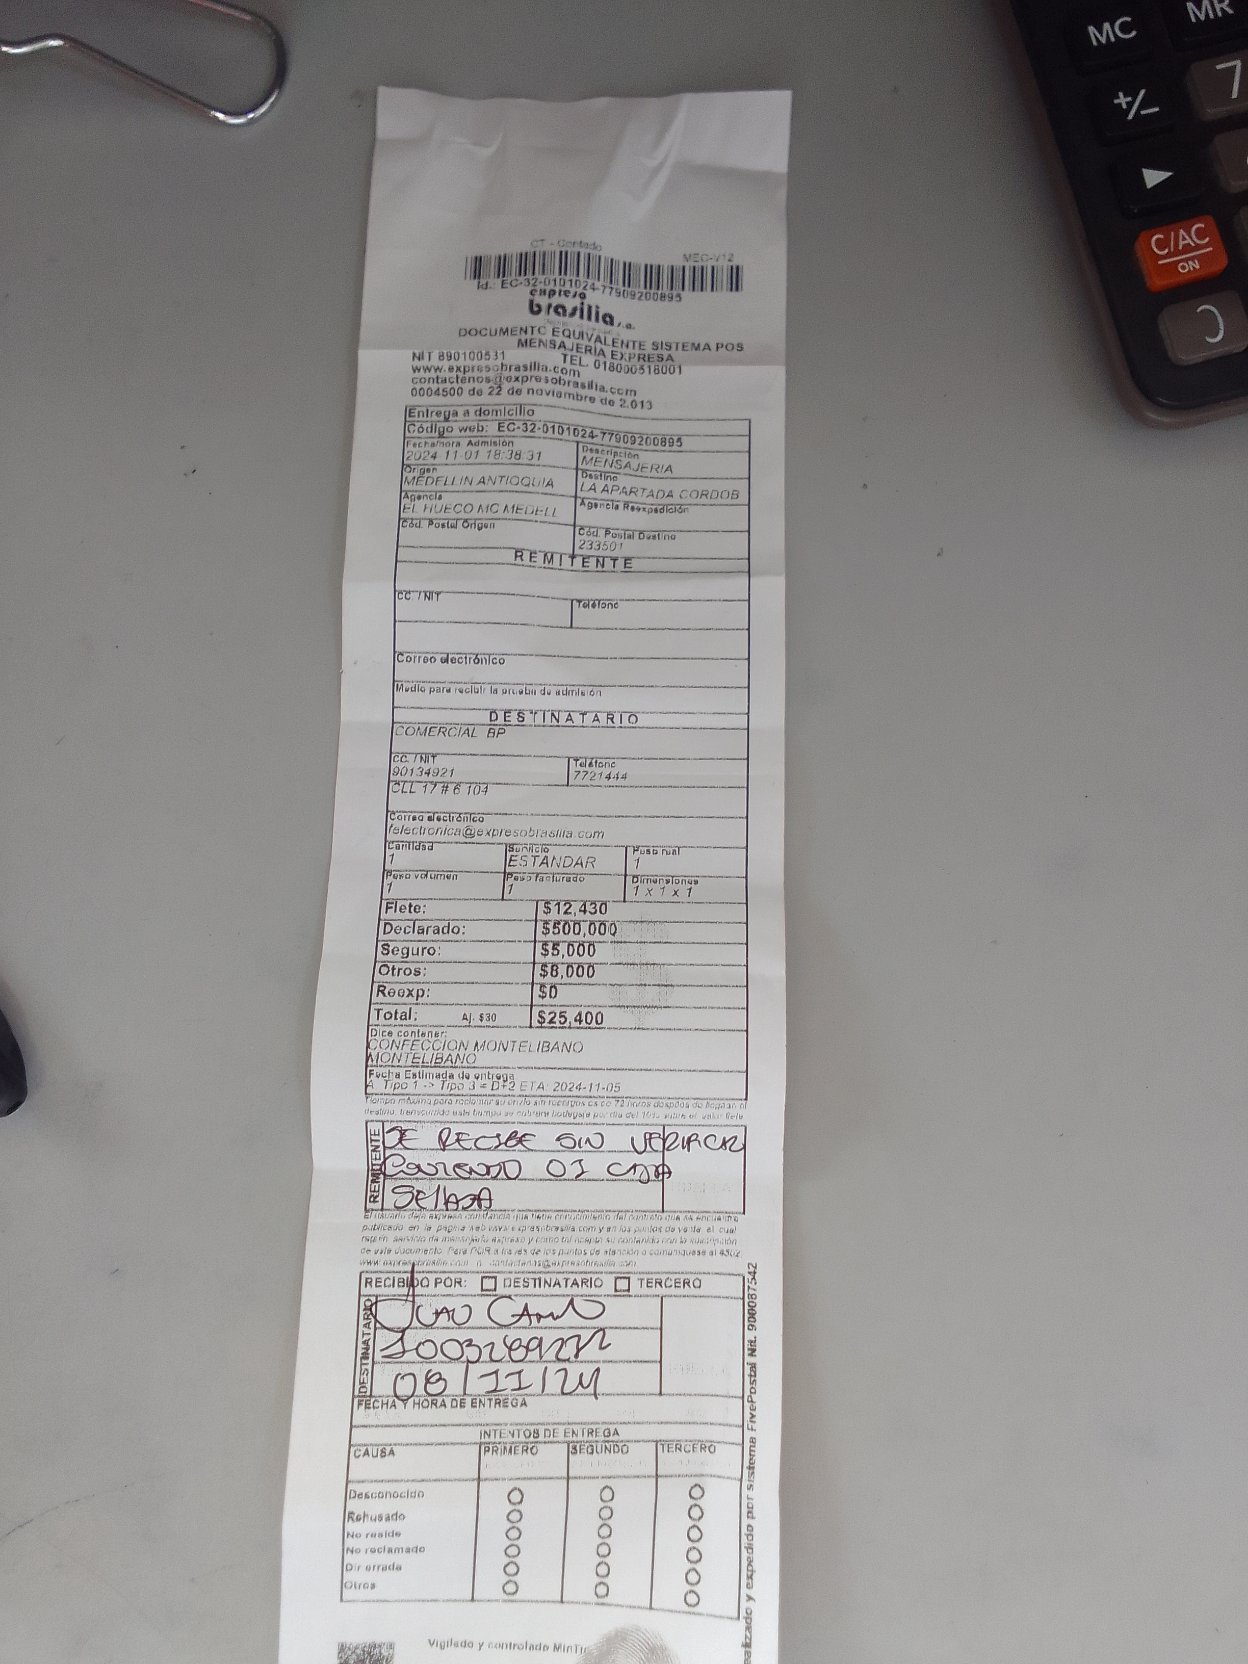 MC
MR
+/-
7
C/AC
ON
CT - Contado
MEC-V12
Id.: EC-32-0101024-77909200895
expreso
brasilia s.a.
DOCUMENTO EQUIVALENTE SISTEMA POS
MENSAJERÍA EXPRESA
NIT 890100531 TEL. 018000518001
www.expresobrasilia.com
contactenos@expresobrasilia.com
0004500 de 22 de noviembre de 2.013
Entrega a domicilio
Código web: EC-32-0101024-77909200895
Fecha/hora Admisión Descripción
2024-11-01 18:38:31 MENSAJERIA
Origen Destino
MEDELLIN ANTIOQUIA LA APARTADA CORDOB
Agencia Agencia Reexpedición
EL HUECO MC MEDELL
Cód. Postal Origen Cód. Postal Destino
233501
REMITENTE
CC. / NIT Teléfono
Correo electrónico
Medio para recibir la prueba de admisión
DESTINATARIO
COMERCIAL BP
CC. / NIT Teléfono
90134921 7721444
CLL 17 # 6 104
Correo electrónico
felectronica@expresobrasilia.com
Cantidad Servicio Peso real
1 ESTANDAR 1
Peso volumen Peso facturado Dimensiones
1 1 1 x 1 x 1
Flete: $12,430
Declarado: $500,000
Seguro: $5,000
Otros: $8,000
Reexp: $0
Total: Aj. $30 $25,400
Dice contener:
CONFECCION MONTELIBANO
MONTELIBANO
Fecha Estimada de entrega
A. Tipo 1 -> Tipo 3 = D+2 ETA: 2024-11-05
Tiempo máximo para reclamar su envío sin recargos es de 72 horas después de llegar al
destino, transcurrido este tiempo se cobrará bodegaje por día del 10% sobre el valor flete
REMITENTE
SE RECIBE SIN VERIFICAR
CONTENIDO 01 CAJA
SELLADA
El usuario deja expresa constancia que tiene conocimiento del contrato que se encuentra
publicado en la página web www.expresobrasilia.com y en los puntos de venta, el cual
regula servicio de mensajería expresa y como tal acepta su contenido con la suscripción
de este documento. Para PQR a través de los puntos de atención o comuníquese al
www.expresobrasilia.com o contactenos@expresobrasilia.com
RECIBIDO POR: DESTINATARIO TERCERO
DESTINATARIO
1003289272
08/11/24
FECHA Y HORA DE ENTREGA
INTENTOS DE ENTREGA
CAUSA PRIMERO SEGUNDO TERCERO
Desconocido
Rehusado
No reside
No reclamado
Dir errada
Otros
ealizado y expedido por sistema FivePostal Nit. 900087542
Vigilado y controlado MinTi